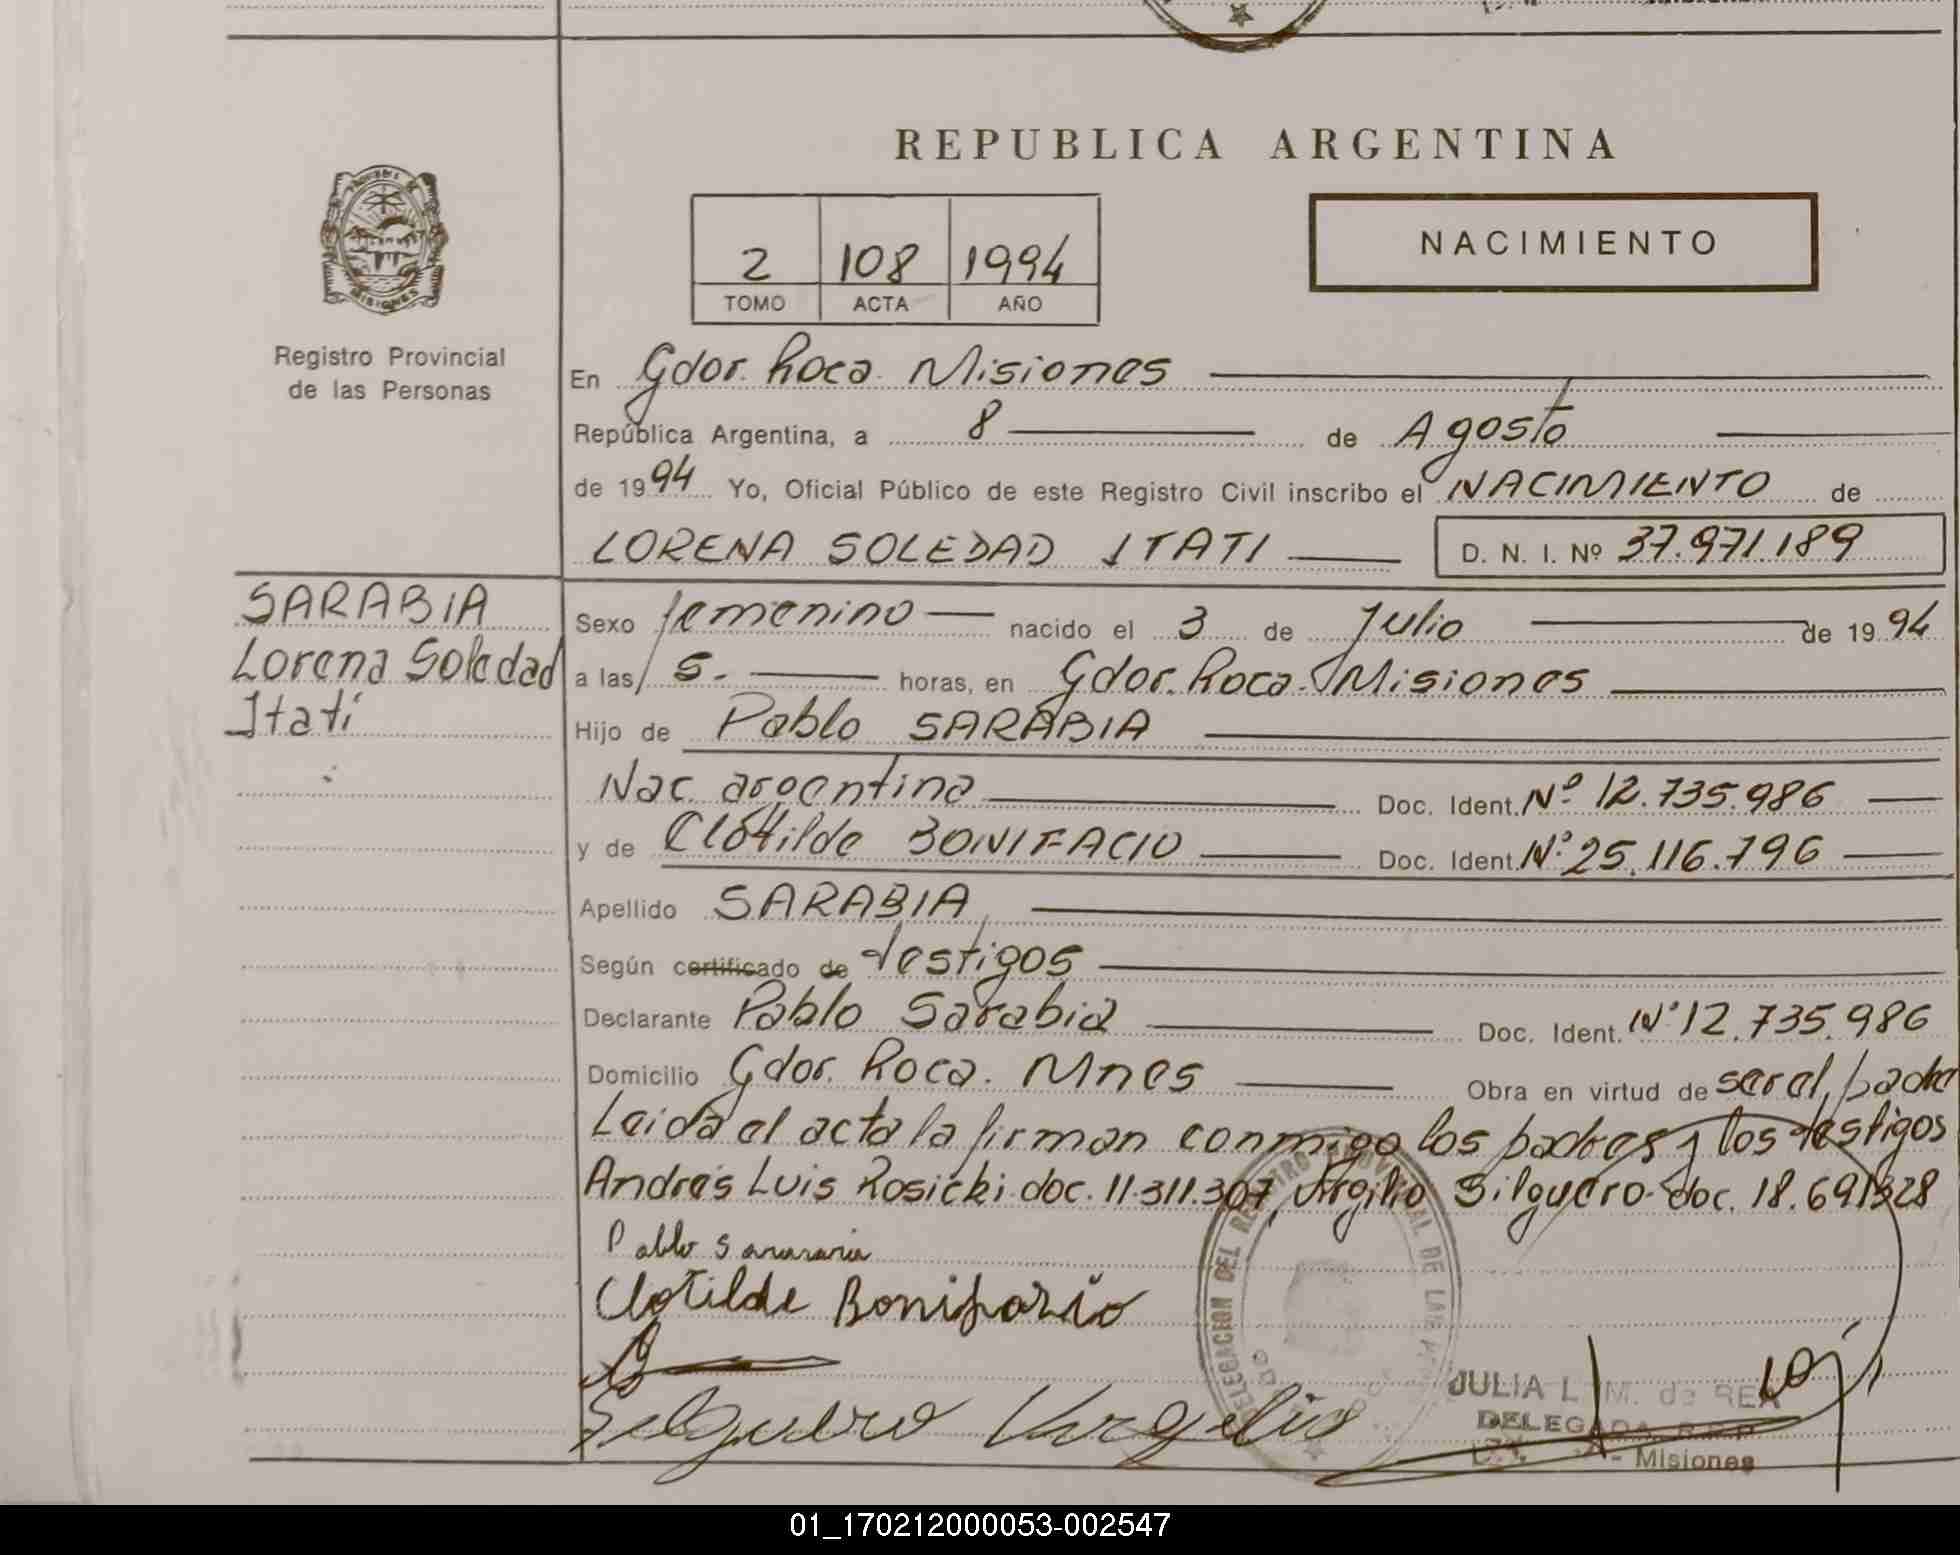 REPUBLICA ARGENTINA
NACIMIENTO
2 108 1994
TOMO ACTA AÑO
MISIONES
Registro Provincial
de las Personas
En Gdor. Roca. Misiones
República Argentina, a 8 de Agosto
de 1994 Yo, Oficial Público de este Registro Civil inscribo el NACIMIENTO de
LORENA SOLEDAD ITATI D. N. I. Nº 37.971.189
SARABIA
Lorena Soledad
Itatí
Sexo femenino nacido el 3 de Julio de 1994
a las 5. horas, en Gdor. Roca. Misiones
Hijo de Pablo SARABIA
Nac. argentina Doc. Ident. Nº 12.735.986
y de Clotilde BONIFACIO Doc. Ident. Nº 25.116.796
Apellido SARABIA
Según certificado de testigos
Declarante Pablo Sarabia Doc. Ident. Nº 12.735.986
Domicilio Gdor. Roca. Mnes Obra en virtud de ser el padre
Leida el acta la firman conmigo los padres y los testigos
Andrés Luis Rosicki doc. 11.311.307, Virgilio Silguero doc. 18.691328
Pablo
Clotilde Bonifazio
Selguero Virgelio
DELEGACION DEL REGISTRO PROVINCIAL DE LAS
JULIA L. M. de REA
DELEGADA R.P.P.
- Misiones
01_170212000053-002547